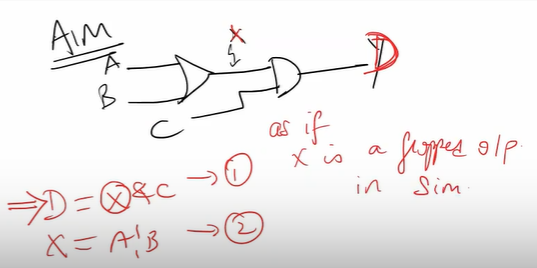 AIM
X
A
B
C
D
as if
X is a flopped o/p.
in sim.
⇒ D = X & C → 1
X = A | B → 2